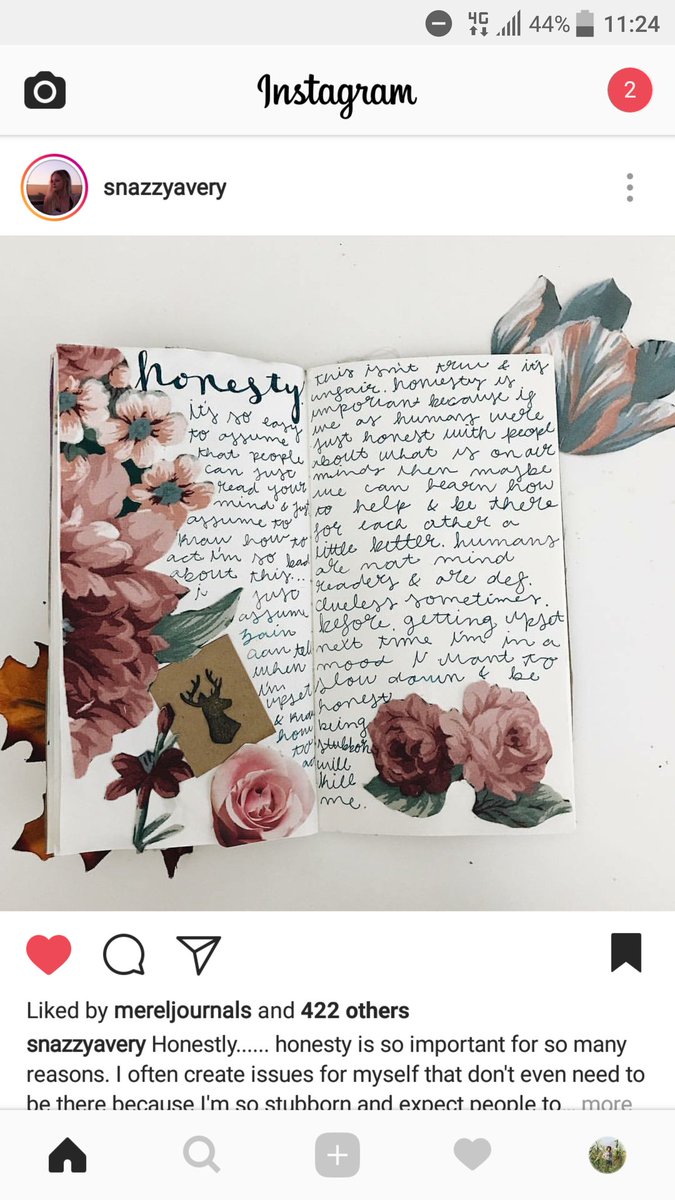 4G
44%
11:24
Instagram
2
snazzyavery
honesty
it's so easy
to assume
that people
can just
read your
mind & just
assume to
know how to
act i'm so bad
about this...
i just
assume
zain
can tell
when
i'm
upset
& know
how
to
this isn't true & it's
unfair. honesty is
important because if
we as humans were
just honest with people
about what is on our
minds then maybe
we can learn how
to help & be there
for each other a
little better. humans
are not mind
readers & are def.
clueless sometimes.
before getting upset
next time i'm in a
mood i want to
slow down & be
honest
being
stubborn
will
kill
me.
Liked by mereljournals and 422 others
snazzyavery Honestly...... honesty is so important for so many
reasons. I often create issues for myself that don't even need to
be there because I'm so stubborn and expect people to... more